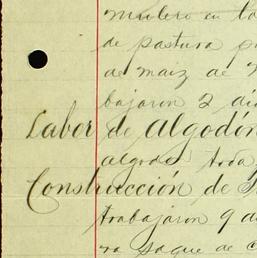 mulero en la
de pastura p
de maiz de
bajaron 2 día
Labor de Algodón
algodo toda
Construcción de
trabajaron 9 d
ra saque de